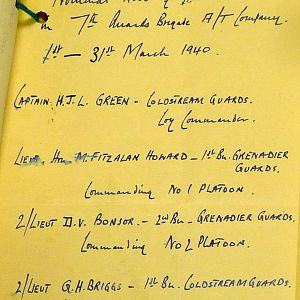 in 7th Guards Brigade A/T Company.
1st — 31st March 1940.
CAPTAIN H.J.L. GREEN – COLDSTREAM GUARDS.
Coy Commander.
LIEUT. Hon. M. FITZALAN HOWARD – 1st Bn. GRENADIER
GUARDS.
Commanding No 1 PLATOON.
2/LIEUT D.V. BONSOR. – 2nd Bn – GRENADIER GUARDS.
Commanding No 2 PLATOON.
2/LIEUT G.H. BRIGGS – 1st Bn. COLDSTREAM GUARDS.